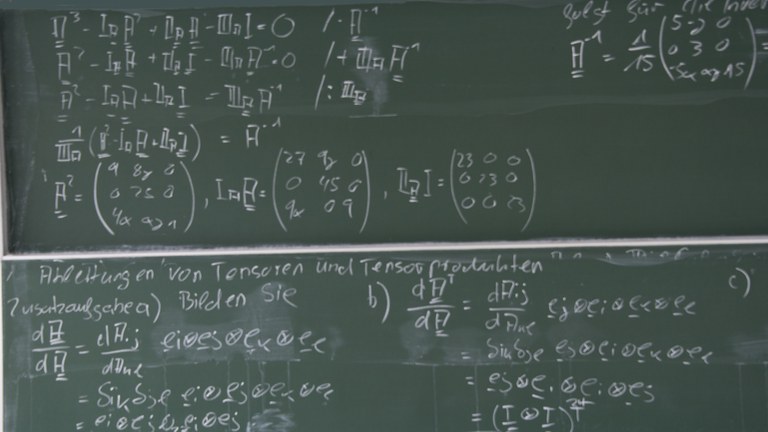 A³ - I_A A² + II_A A - III_A I = 0 /· A⁻¹
A² - I_A A + II_A I - III_A A⁻¹ = 0 /+ III_A A⁻¹
A² - I_A A + II_A I = III_A A⁻¹ /: III_A
1/III_A (A² - I_A A + II_A I) = A⁻¹
A² = (9 8y 0
0 25 0
4x 1), I_A A = (27 9y 0
0 45 0
9x 0 9), II_A I = (23 0 0
0 23 0
0 0 23)
für die
A⁻¹ = 1/15 (5 -y 0
0 3 0
-5x 15) =
Ableitungen von Tensoren und Tensorprodukten
Zusatzaufgabe a) Bilden Sie
dA/dA = dA_ij/dA_kl e_i⊗e_j⊗e_k⊗e_l
= δ_ik δ_jl e_i⊗e_j⊗e_k⊗e_l
= e_i⊗e_j⊗e_i⊗e_j
b) dAᵀ/dA = dA_ij/dA_kl e_j⊗e_i⊗e_k⊗e_l
= δ_ik δ_jl e_j⊗e_i⊗e_k⊗e_l
= e_j⊗e_i⊗e_i⊗e_j
= (I⊗I)
c)